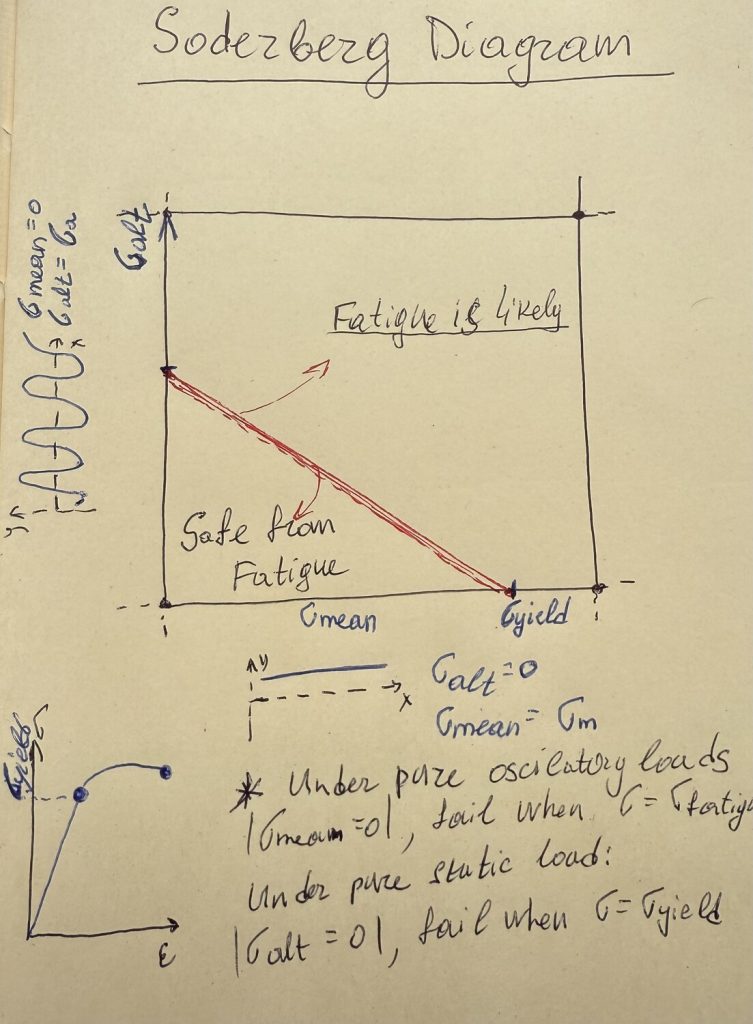 Soderberg Diagram
σmean = 0
σalt = σa
σalt
Fatigue is likely
Safe from
Fatigue
σmean
σyield
y
x
y
x
σalt = 0
σmean = σm
σ
σyield
ε
* Under pure oscilatory loads
|σmean = 0|, fail when σ = σfatigu
Under pure static load:
|σalt = 0|, fail when σ = σyield